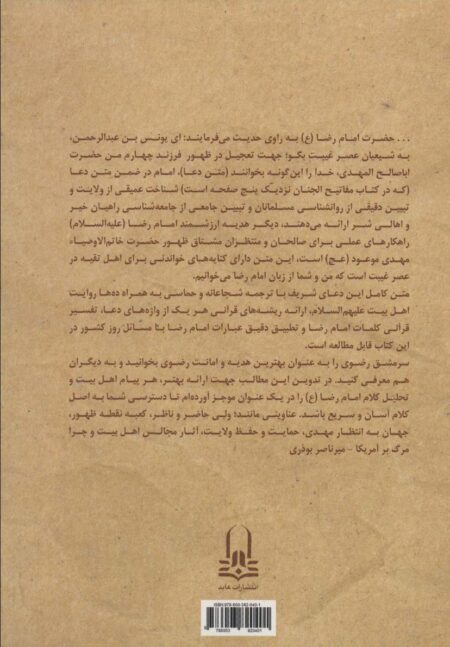 ... حضرت امام رضا (ع) به راوی حدیث می‌فرمایند: ای یونس بن عبدالرحمن،
به شیعیان عصر غیبت بگو؛ جهت تعجیل در ظهور فرزند چهارم من حضرت
اباصالح المهدی، خدا را این‌گونه بخوانند (متن دعا)، امام در ضمن متن دعا
(که در کتاب مفاتیح الجنان نزدیک پنج صفحه است) شناخت عمیقی از ولایت و
تبیین دقیقی از روانشناسی مسلمانان و تبیین جامعی از جامعه‌شناسی راهیان خیر
و اهالی شر ارائه می‌دهند، دیگر هدیه ارزشمند امام رضا (علیه‌السلام)
راهکارهای عملی برای صالحان و منتظران مشتاق ظهور حضرت خاتم‌الاوصیاء
مهدی موعود (عج) است، این متن دارای کنایه‌های خواندنی برای اهل تقیه در
عصر غیبت است که من و شما از زبان امام رضا می‌خوانیم.
متن کامل این دعای شریف با ترجمه شجاعانه و حماسی به همراه ده‌ها روایت
اهل بیت علیهم‌السلام، ارائه ریشه‌های قرآنی هر یک از واژه‌های دعا، تفسیر
قرآنی کلمات امام رضا و تطبیق دقیق عبارات امام رضا با مسائل روز کشور در
این کتاب قابل مطالعه است.
سرمشق رضوی را به عنوان بهترین هدیه و امانت رضوی بخوانید و به دیگران
هم معرفی کنید. در تدوین این مطالب جهت ارائه بهتر، هر پیام اهل بیت و
تحلیل کلام امام رضا (ع) را در یک عنوان موجز آورده‌ام تا دسترسی شما به اصل
کلام آسان و سریع باشد. عناوینی مانند؛ ولی حاضر و ناظر، کعبه نقطه ظهور،
جهان به انتظار مهدی، حمایت و حفظ ولایت، آثار مجالس اهل بیت و چرا
مرگ بر آمریکا - میرناصر بوذری
انتشارات عابد